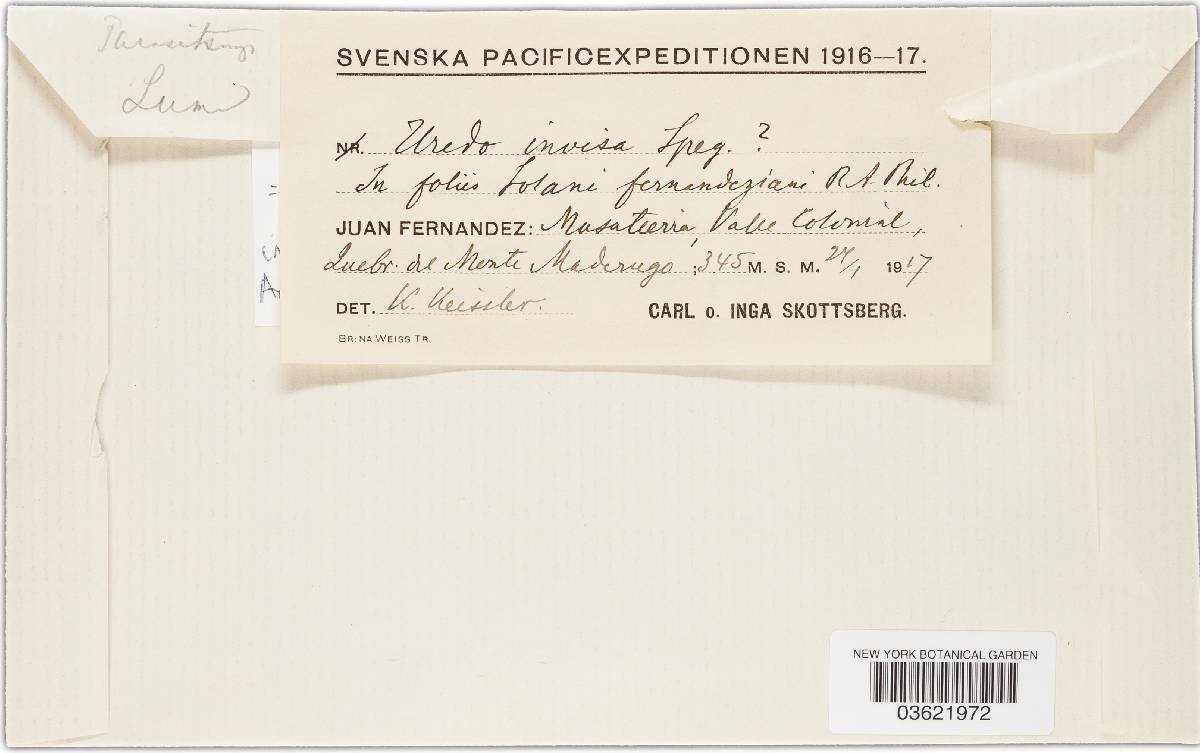 Lumi
SVENSKA PACIFICEXPEDITIONEN 1916—17.
NR. Uredo invisa Speg. ?
In foliis Solani fernandeziani R A Phil.
JUAN FERNANDEZ: Masatierra, Valle Colonial,
Quebr. del Monte Maderugo; 345 M. S. M. 24/1 1917
DET. K. Keissler.
CARL O. INGA SKOTTSBERG.
BR:NA WEISS TR.
NEW YORK BOTANICAL GARDEN
03621972